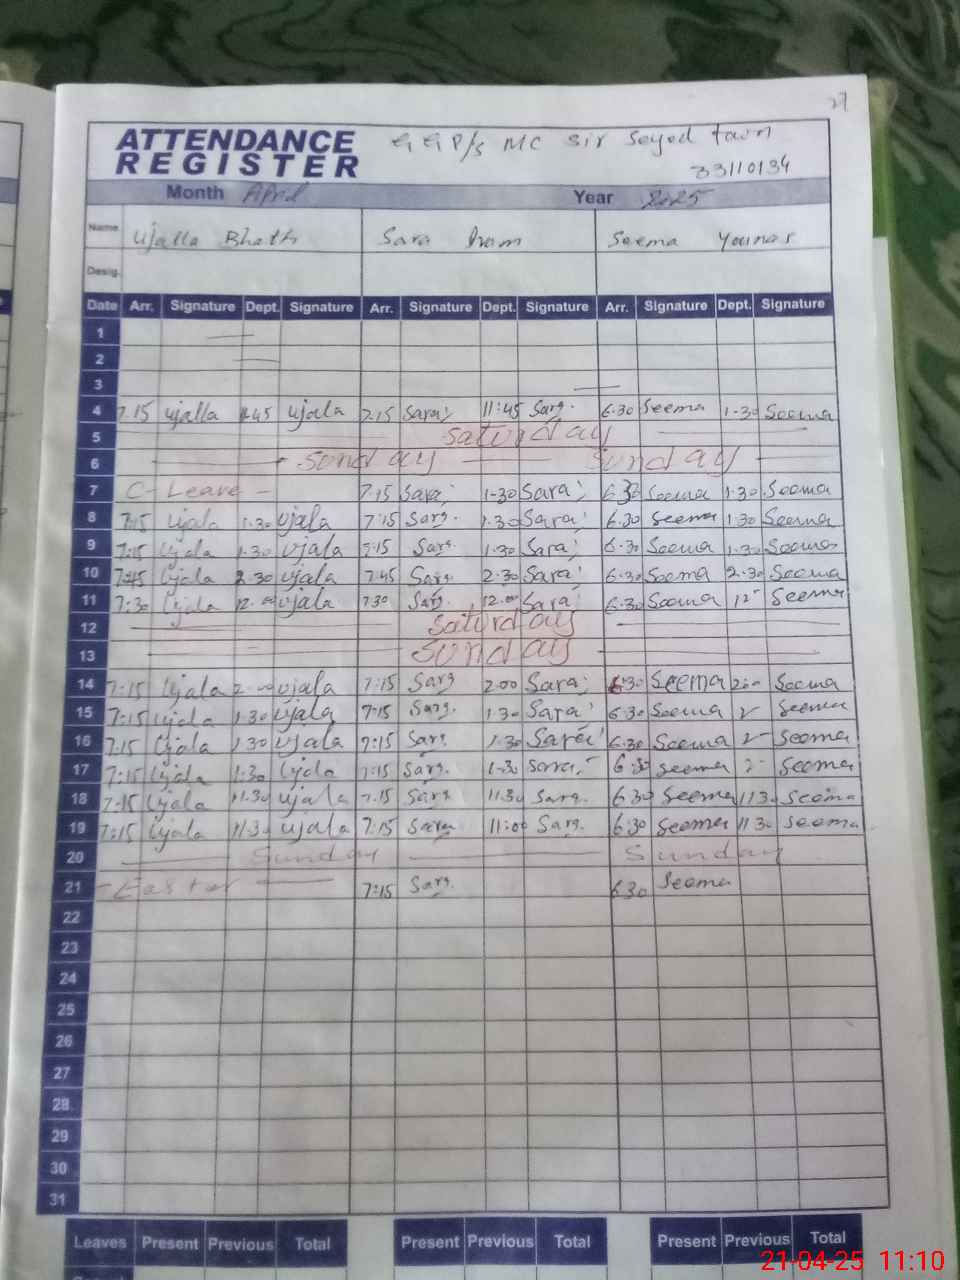 27
ATTENDANCE REGISTER
GGP/s MC Sir Seyed town
33110134
Month April Year 2025
Name Ujalla Bhatti Sara Seema Younas
Desig.
Date Arr. Signature Dept. Signature Arr. Signature Dept. Signature Arr. Signature Dept. Signature
1
2
3
4 7.15 Ujalla 11.45 Ujala 7.15 Sara 11:45 Sara 6.30 Seema 1.30 Seema
5 Saturday
6 Sunday Sunday
7 C-Leave - 7.15 Sara 1-30 Sara 6.30 Seema 1.30 Seema
8 7:15 Ujala 1.30 Ujala 7:15 Sara 1.30 Sara 6.30 Seema 1.30 Seema
9 7:15 Ujala 1.30 Ujala 7:15 Sara 1.30 Sara 6.30 Seema 1.30 Seema
10 7:45 Ujala 2.30 Ujala 7.45 Sara 2.30 Sara 6.30 Seema 2.30 Seema
11 7:30 Ujala 12.00 Ujala 7.30 Sara 12.00 Sara 6.30 Seema 12 Seema
12 Saturday
13 Sunday
14 7:15 Ujala 2.00 Ujala 7:15 Sara 2.00 Sara 6.30 Seema 2.00 Seema
15 7:15 Ujala 1.30 Ujala 7:15 Sara 1.30 Sara 6.30 Seema 2 Seema
16 7:15 Ujala 1.30 Ujala 7:15 Sara 1.30 Sara 6.30 Seema 2 Seema
17 7:15 Ujala 1:30 Ujala 7:15 Sara 1.30 Sara 6:30 Seema 2 Seema
18 7:15 Ujala 11.30 Ujala 7.15 Sara 11.30 Sara 6.30 Seema 11.30 Seema
19 7:15 Ujala 11.30 Ujala 7:15 Sara 11:00 Sara 6:30 Seema 11.30 Seema
20 Sunday Sunday
21 -Easter 7:15 Sara 6.30 Seema
22
23
24
25
26
27
28
29
30
31
Leaves Present Previous Total Present Previous Total Present Previous Total
21-04-25 11:10